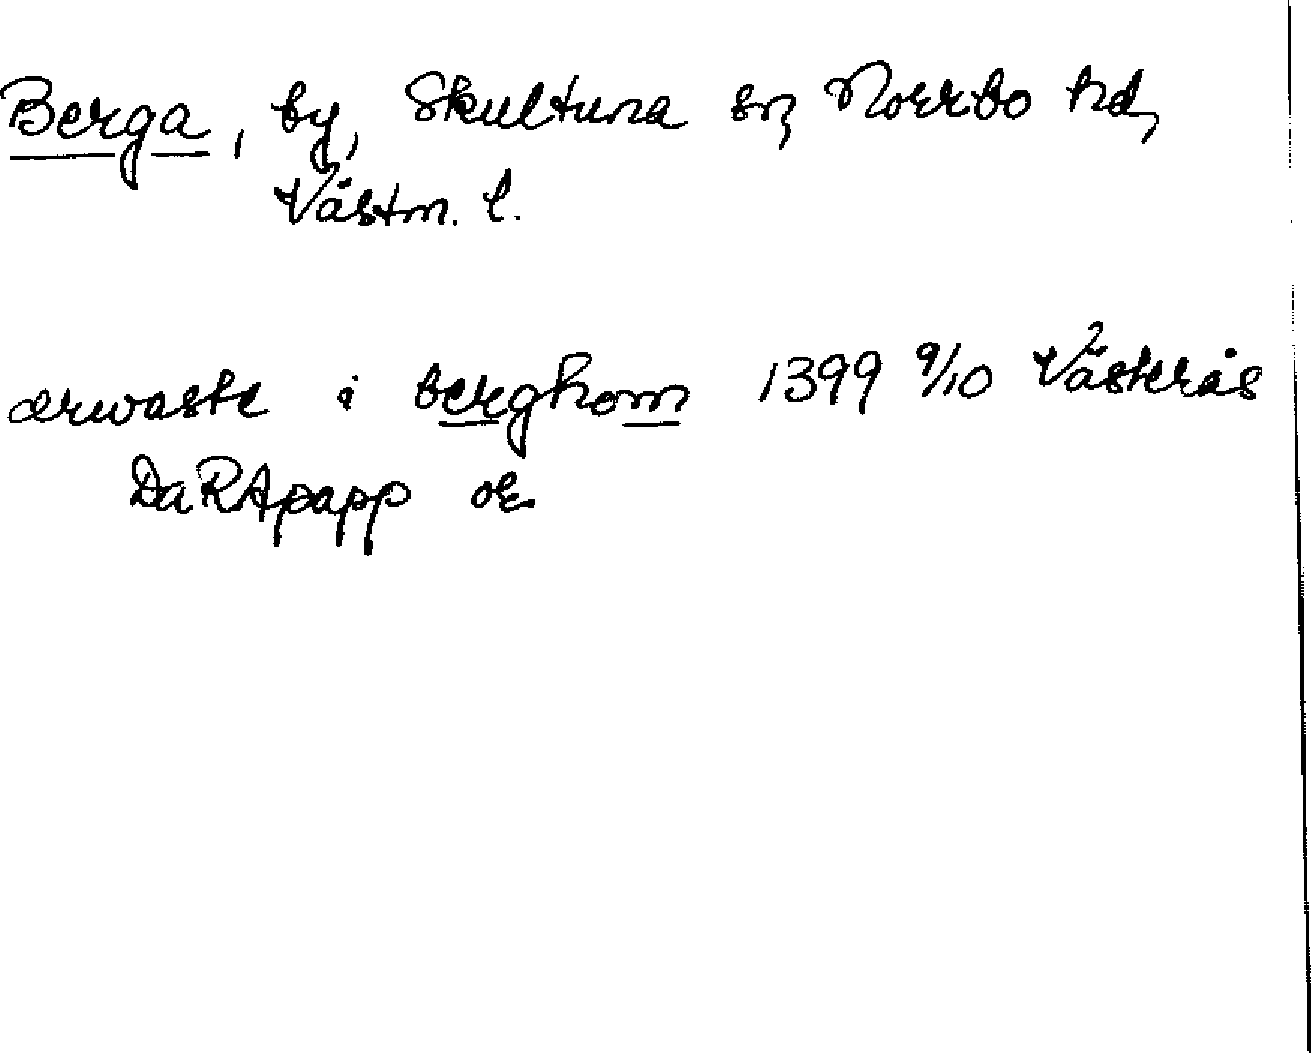 Berga, by, Skultuna sn, Norrbo hd,
Västm. l.
ærwaste i berghom 1399 9/10 Västerås
DaRApapp or